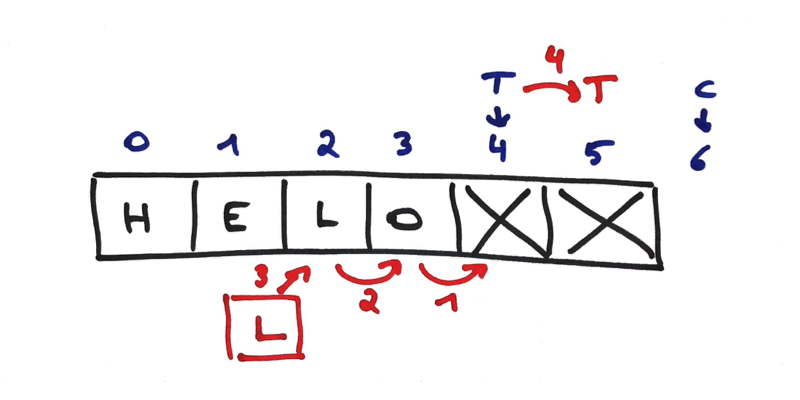 4
T T C
0 1 2 3 4 5 6
H E L O X X
3 2 1
L